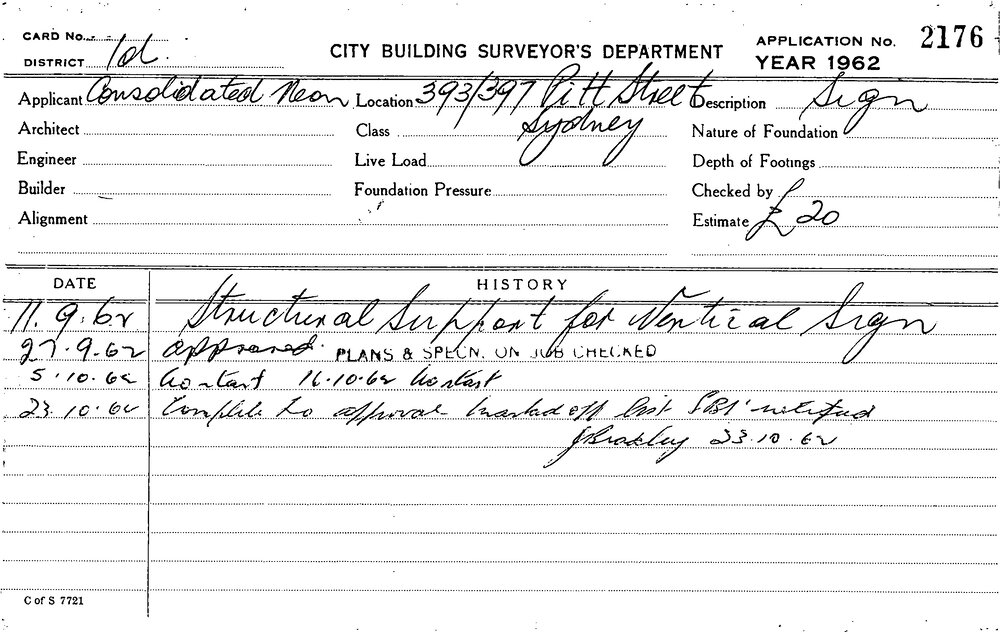 CARD No.
CITY BUILDING SURVEYOR'S DEPARTMENT
APPLICATION No. 2176
DISTRICT 1d.
YEAR 1962
Applicant Consolidated Neon Location 393/397 Pitt Street Description Sign
Architect Class Sydney Nature of Foundation
Engineer Live Load Depth of Footings
Builder Foundation Pressure Checked by
Alignment Estimate £20
DATE HISTORY
11.9.62 Structural Support for Vertical Sign
27.9.62 approved. PLANS & SPECN. ON JOB CHECKED
5.10.62 No start 16.10.62 No start
23.10.62 Complete to approval marked off list SBI notified
23.10.62
C of S 7721